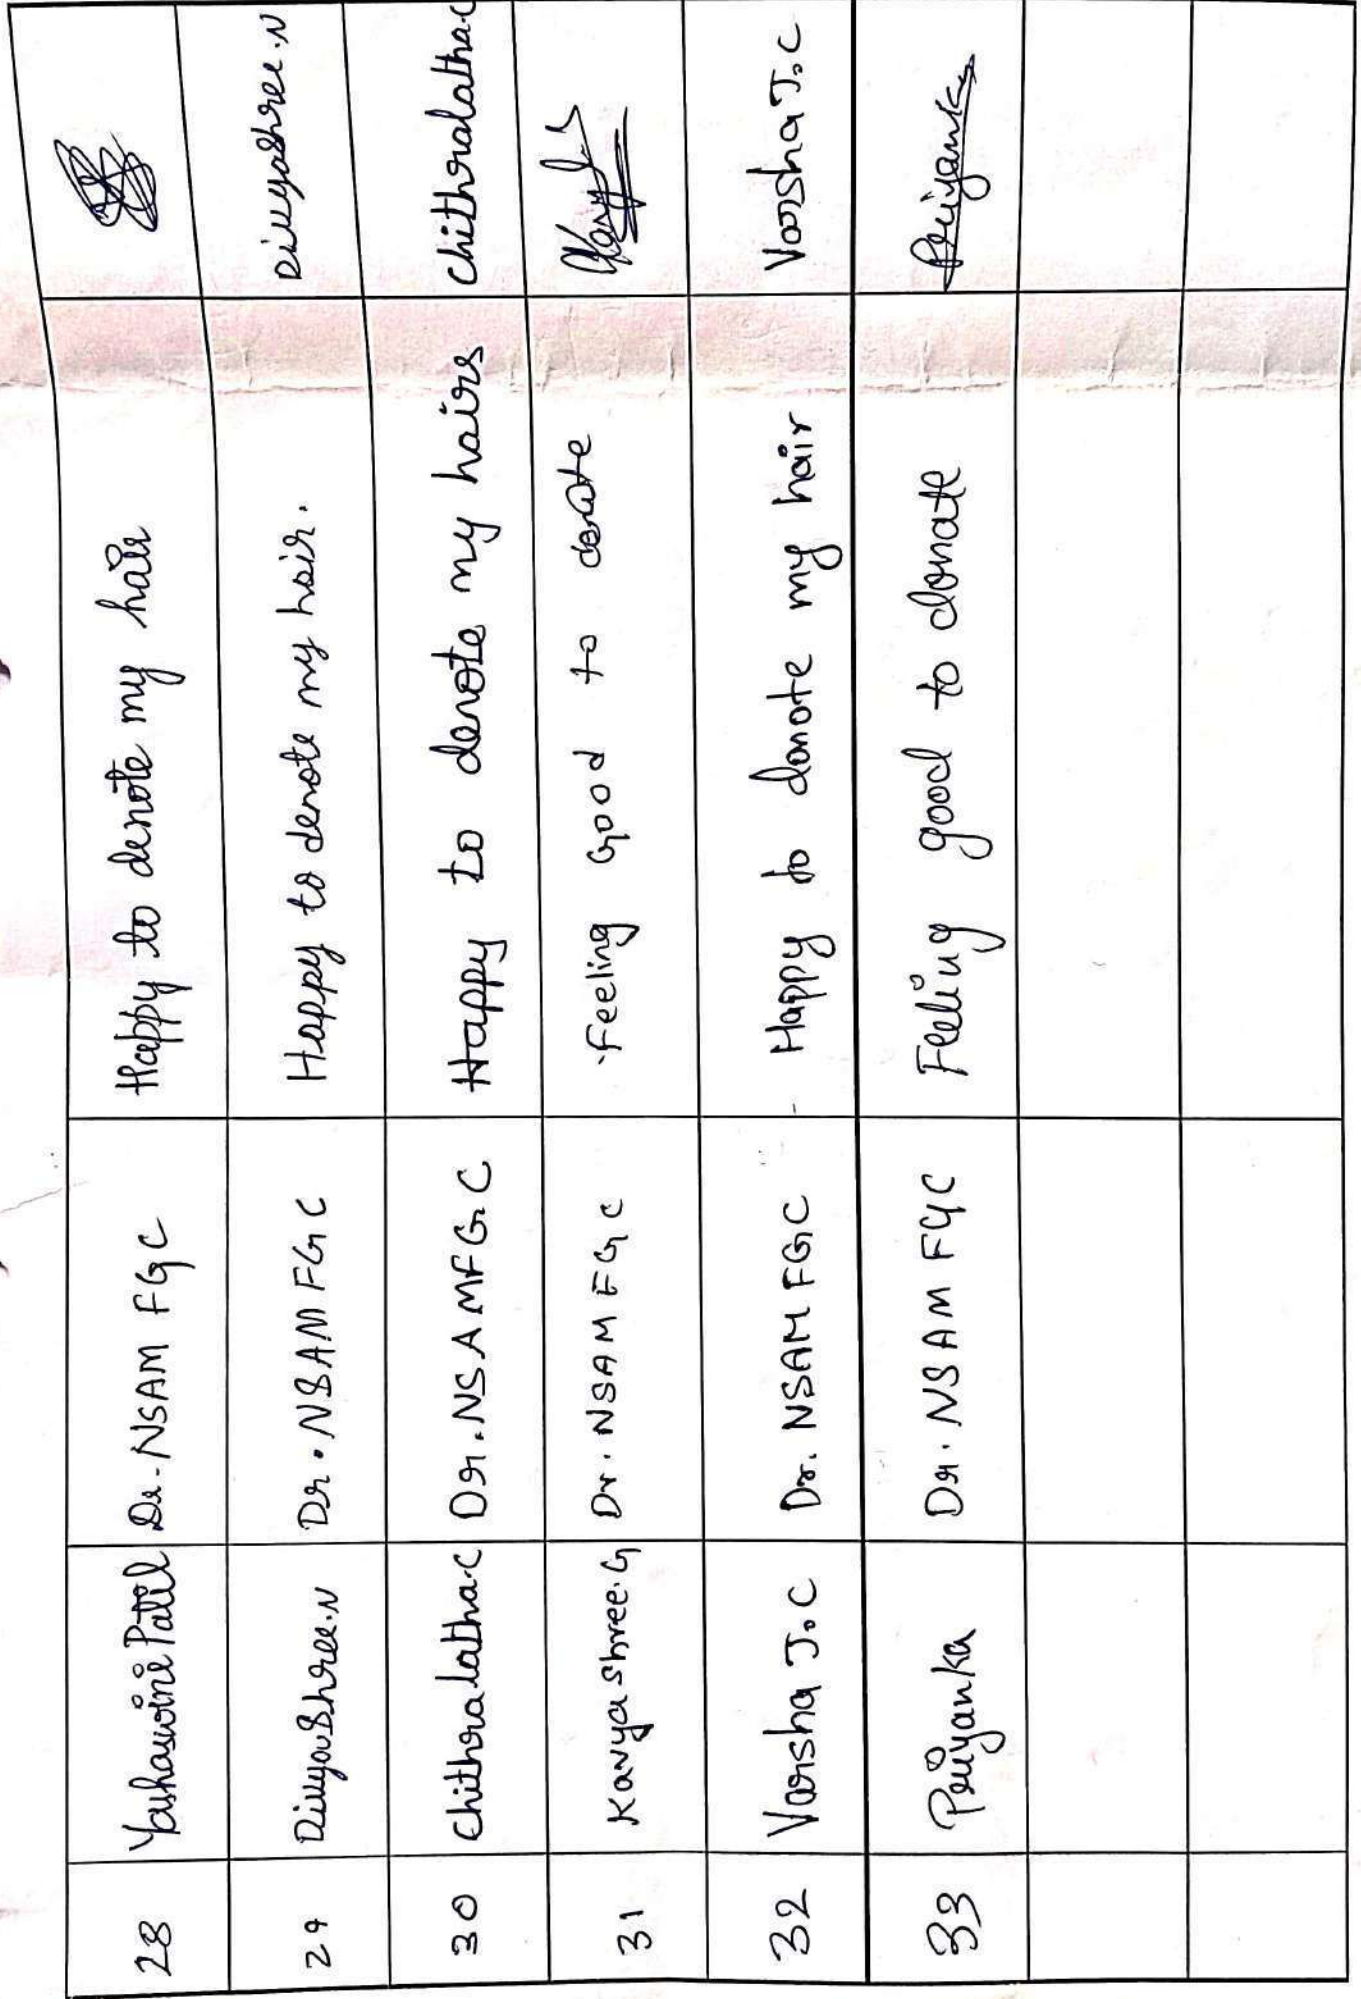 28 Yashaswini Patil Dr. NSAM FGC Happy to denote my hair
29 Divyashree.N Dr. NSAM FGC Happy to denote my hair. Divyashree.N
30 Chithralatha.C Dr. NSAMFGC Happy to denote my hairs Chithralatha.C
31 Kavyashree.G Dr. NSAM FGC Feeling Good to donate
32 Varsha J.C Dr. NSAM FGC Happy to donate my hair Varsha J.C
33 Priyanka Dr. NSAM FGC Feeling good to donate Priyanka